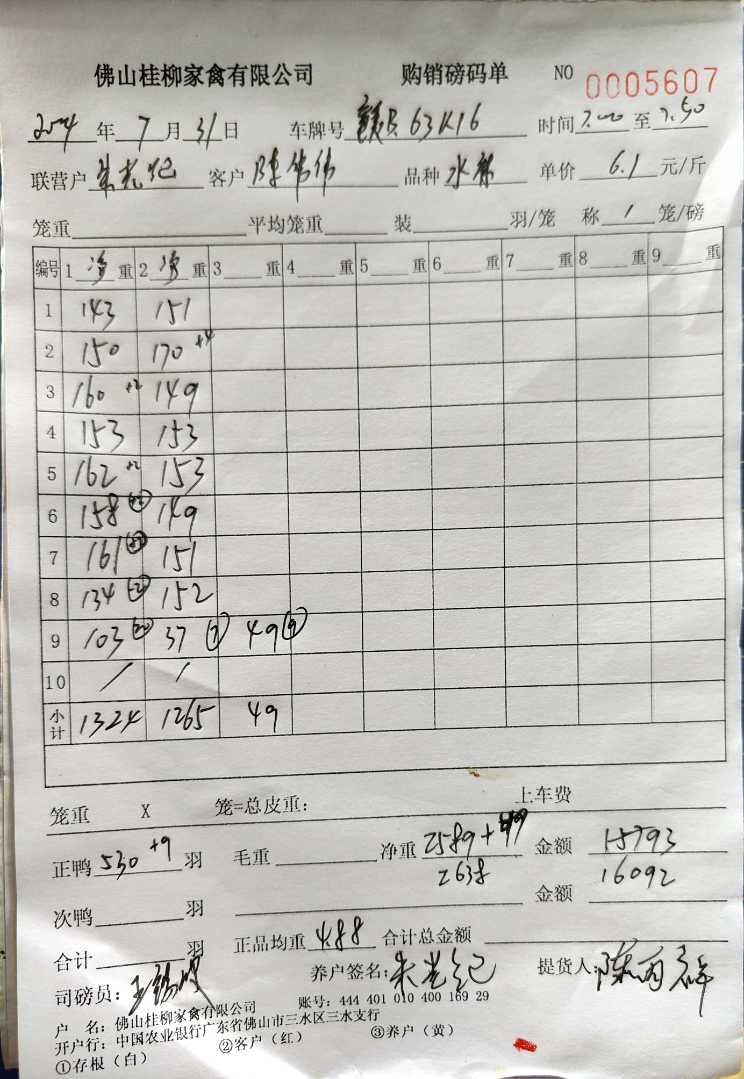 佛山桂柳家禽有限公司 购销磅码单 NO 0005607
2024年7月31日 车牌号 B.63K16 时间7.00至7.50
联营户 朱光 客户 陈伟伟 品种 水 单价 6.1 元/斤
笼重 平均笼重 装 羽/笼 称 1 笼/磅
编号 1净重 2净重 3 重 4 重 5 重 6 重 7 重 8 重 9 重
1 143 151
2 150 170 +4
3 160 +2 149
4 153 153
5 162 +2 153
6 158 149
7 161 151
8 134 152
9 103 37 ⑦ 49 ⑨
10 / /
小计 1324 1265 49
笼重 X 笼=总皮重: 上车费
正鸭 530 +9 羽 毛重 净重 2589+49 金额 15793
2638 金额 16092
次鸭 羽
合计 羽 正品均重 4.88 合计总金额
司磅员: 王 养户签名: 朱光 提货人: 陈
户 名: 佛山桂柳家禽有限公司 账号: 444 401 010 400 169 29
开户行: 中国农业银行广东省佛山市三水区三水支行
①存根（白） ②客户（红） ③养户（黄）